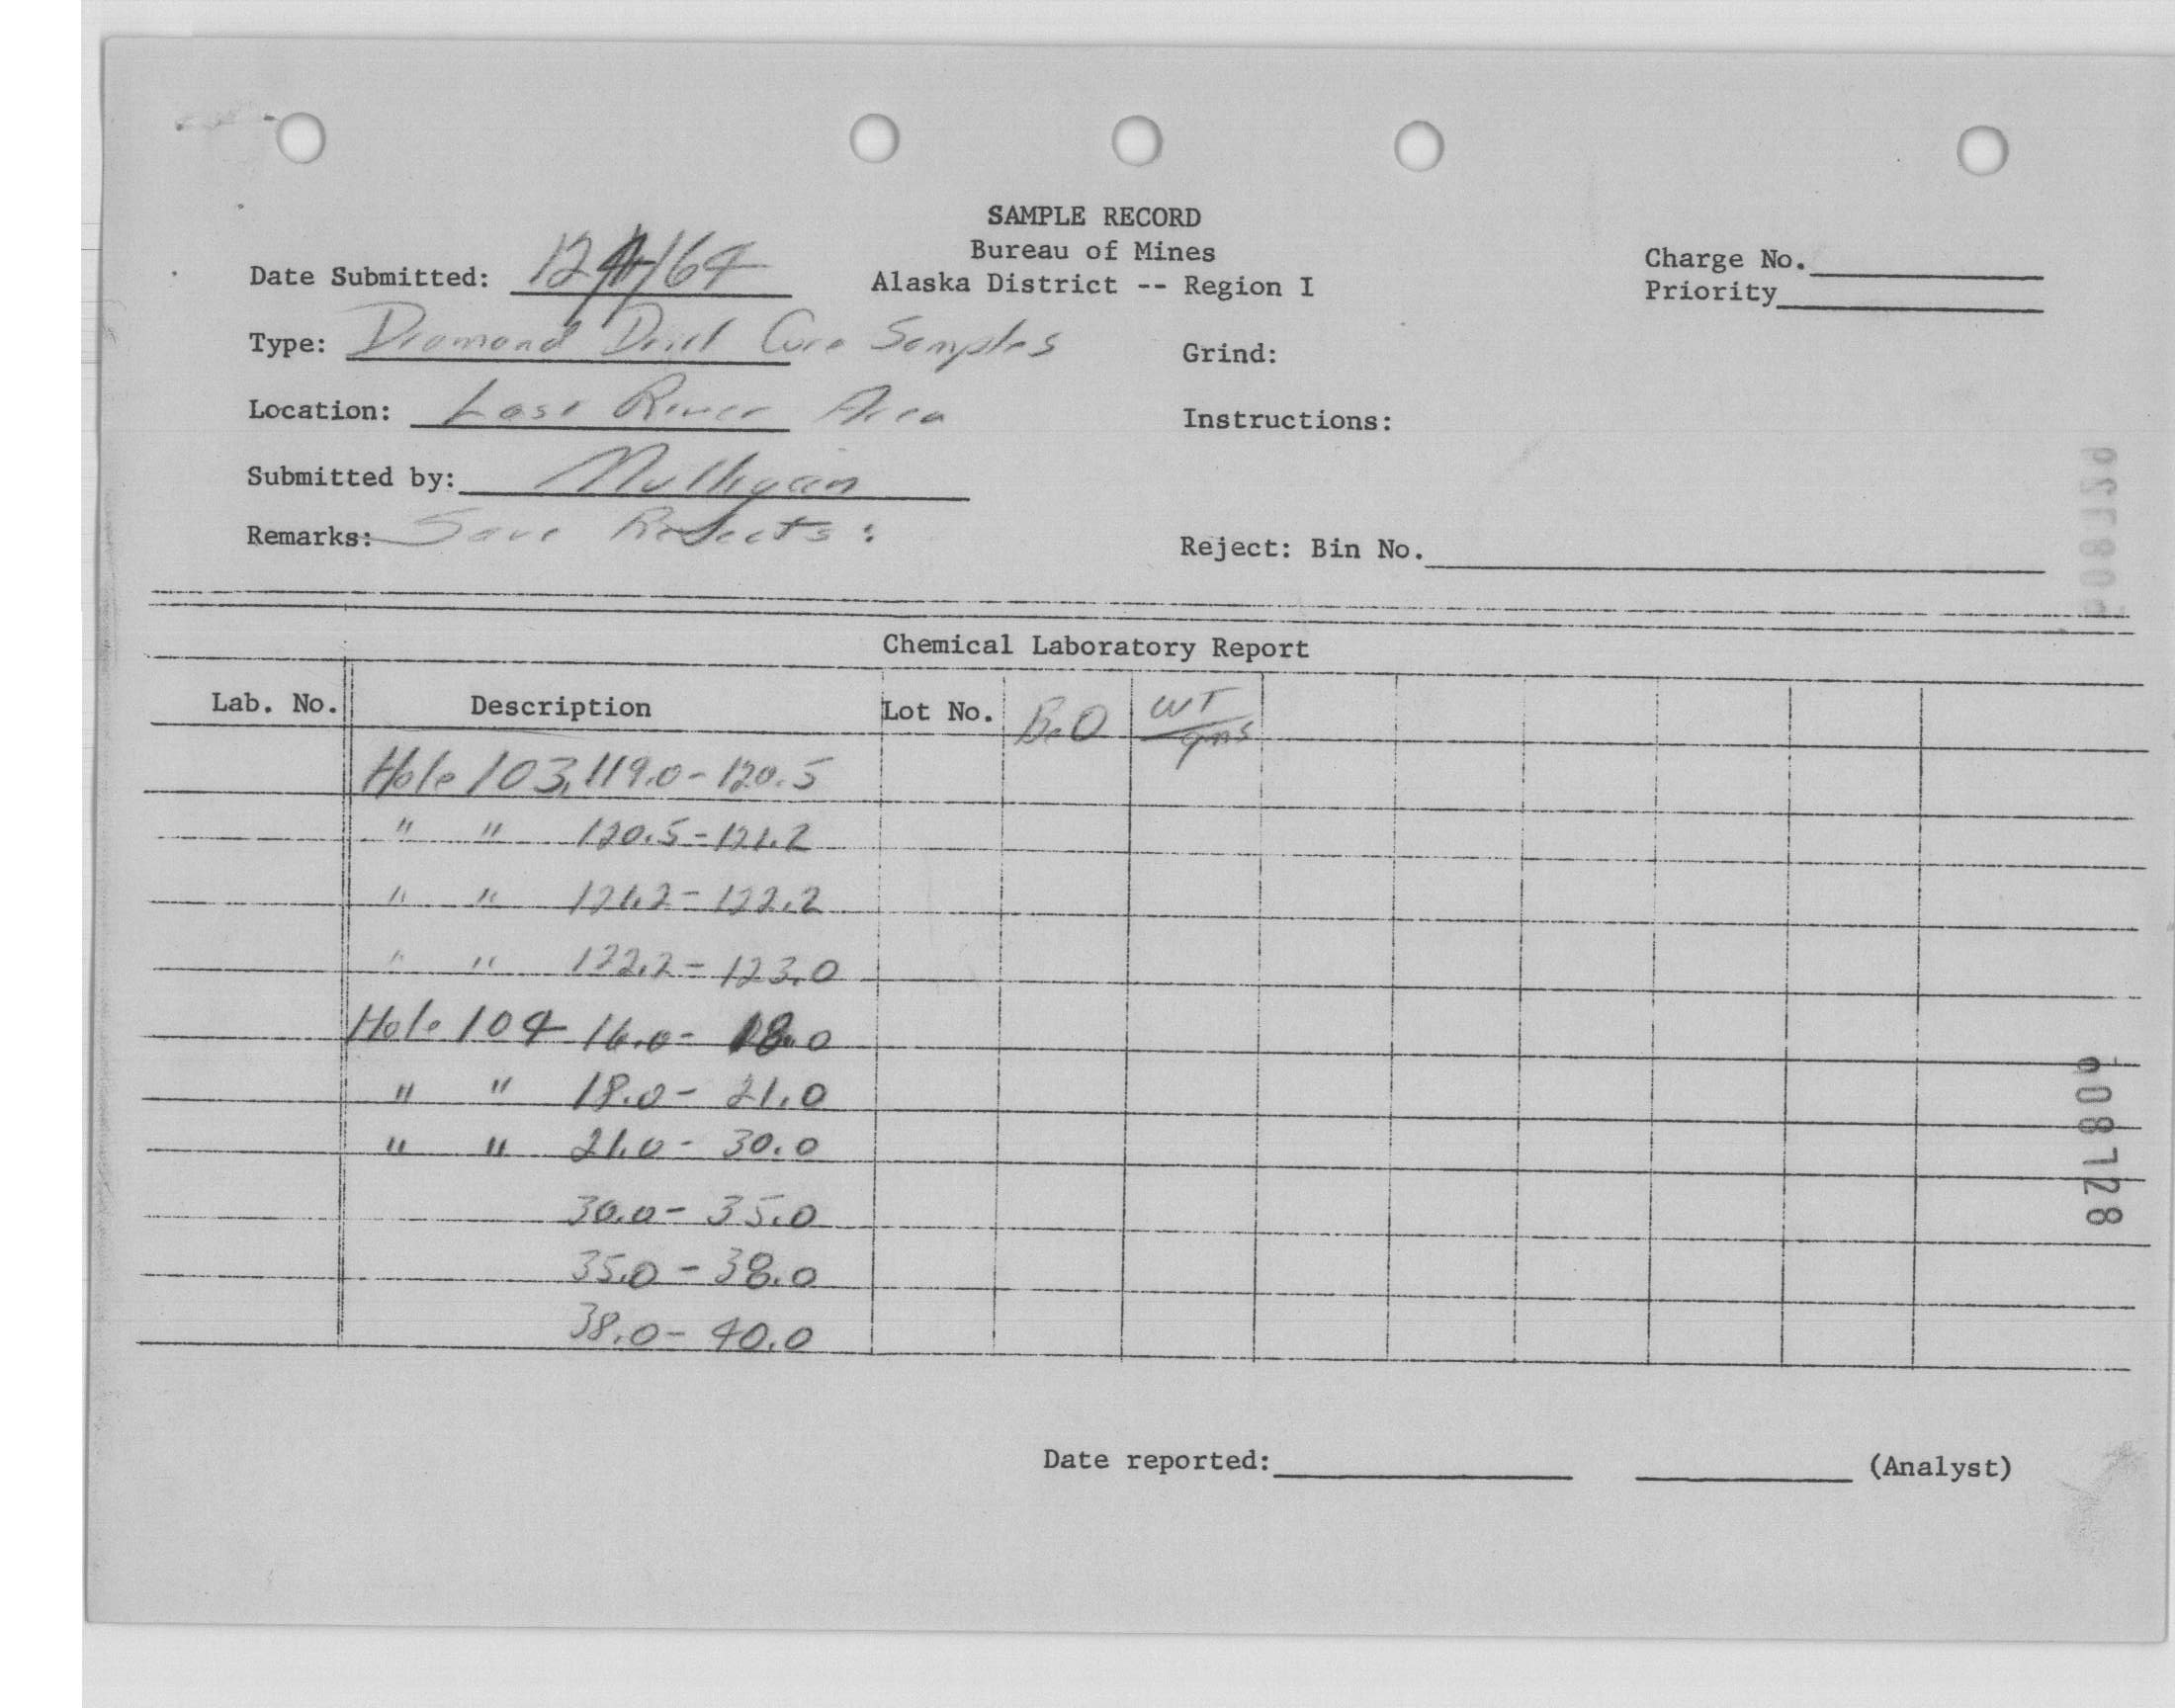 SAMPLE RECORD
Bureau of Mines
Alaska District -- Region I
Charge No.
Priority
Date Submitted: 12/4/64
Type: Diamond Drill Core Samples
Grind:
Location: Lost River Area
Instructions:
Submitted by: Mulligan
Remarks: Save Rejects:
Reject: Bin No.
Chemical Laboratory Report
Lab. No. Description Lot No. BeO WT/gms
Hole 103, 119.0 - 120.5
" " 120.5 - 121.2
" " 121.2 - 122.2
" " 122.2 - 123.0
Hole 104 16.0 - 18.0
" " 18.0 - 21.0
" " 21.0 - 30.0
30.0 - 35.0
35.0 - 38.0
38.0 - 40.0
Date reported: (Analyst)